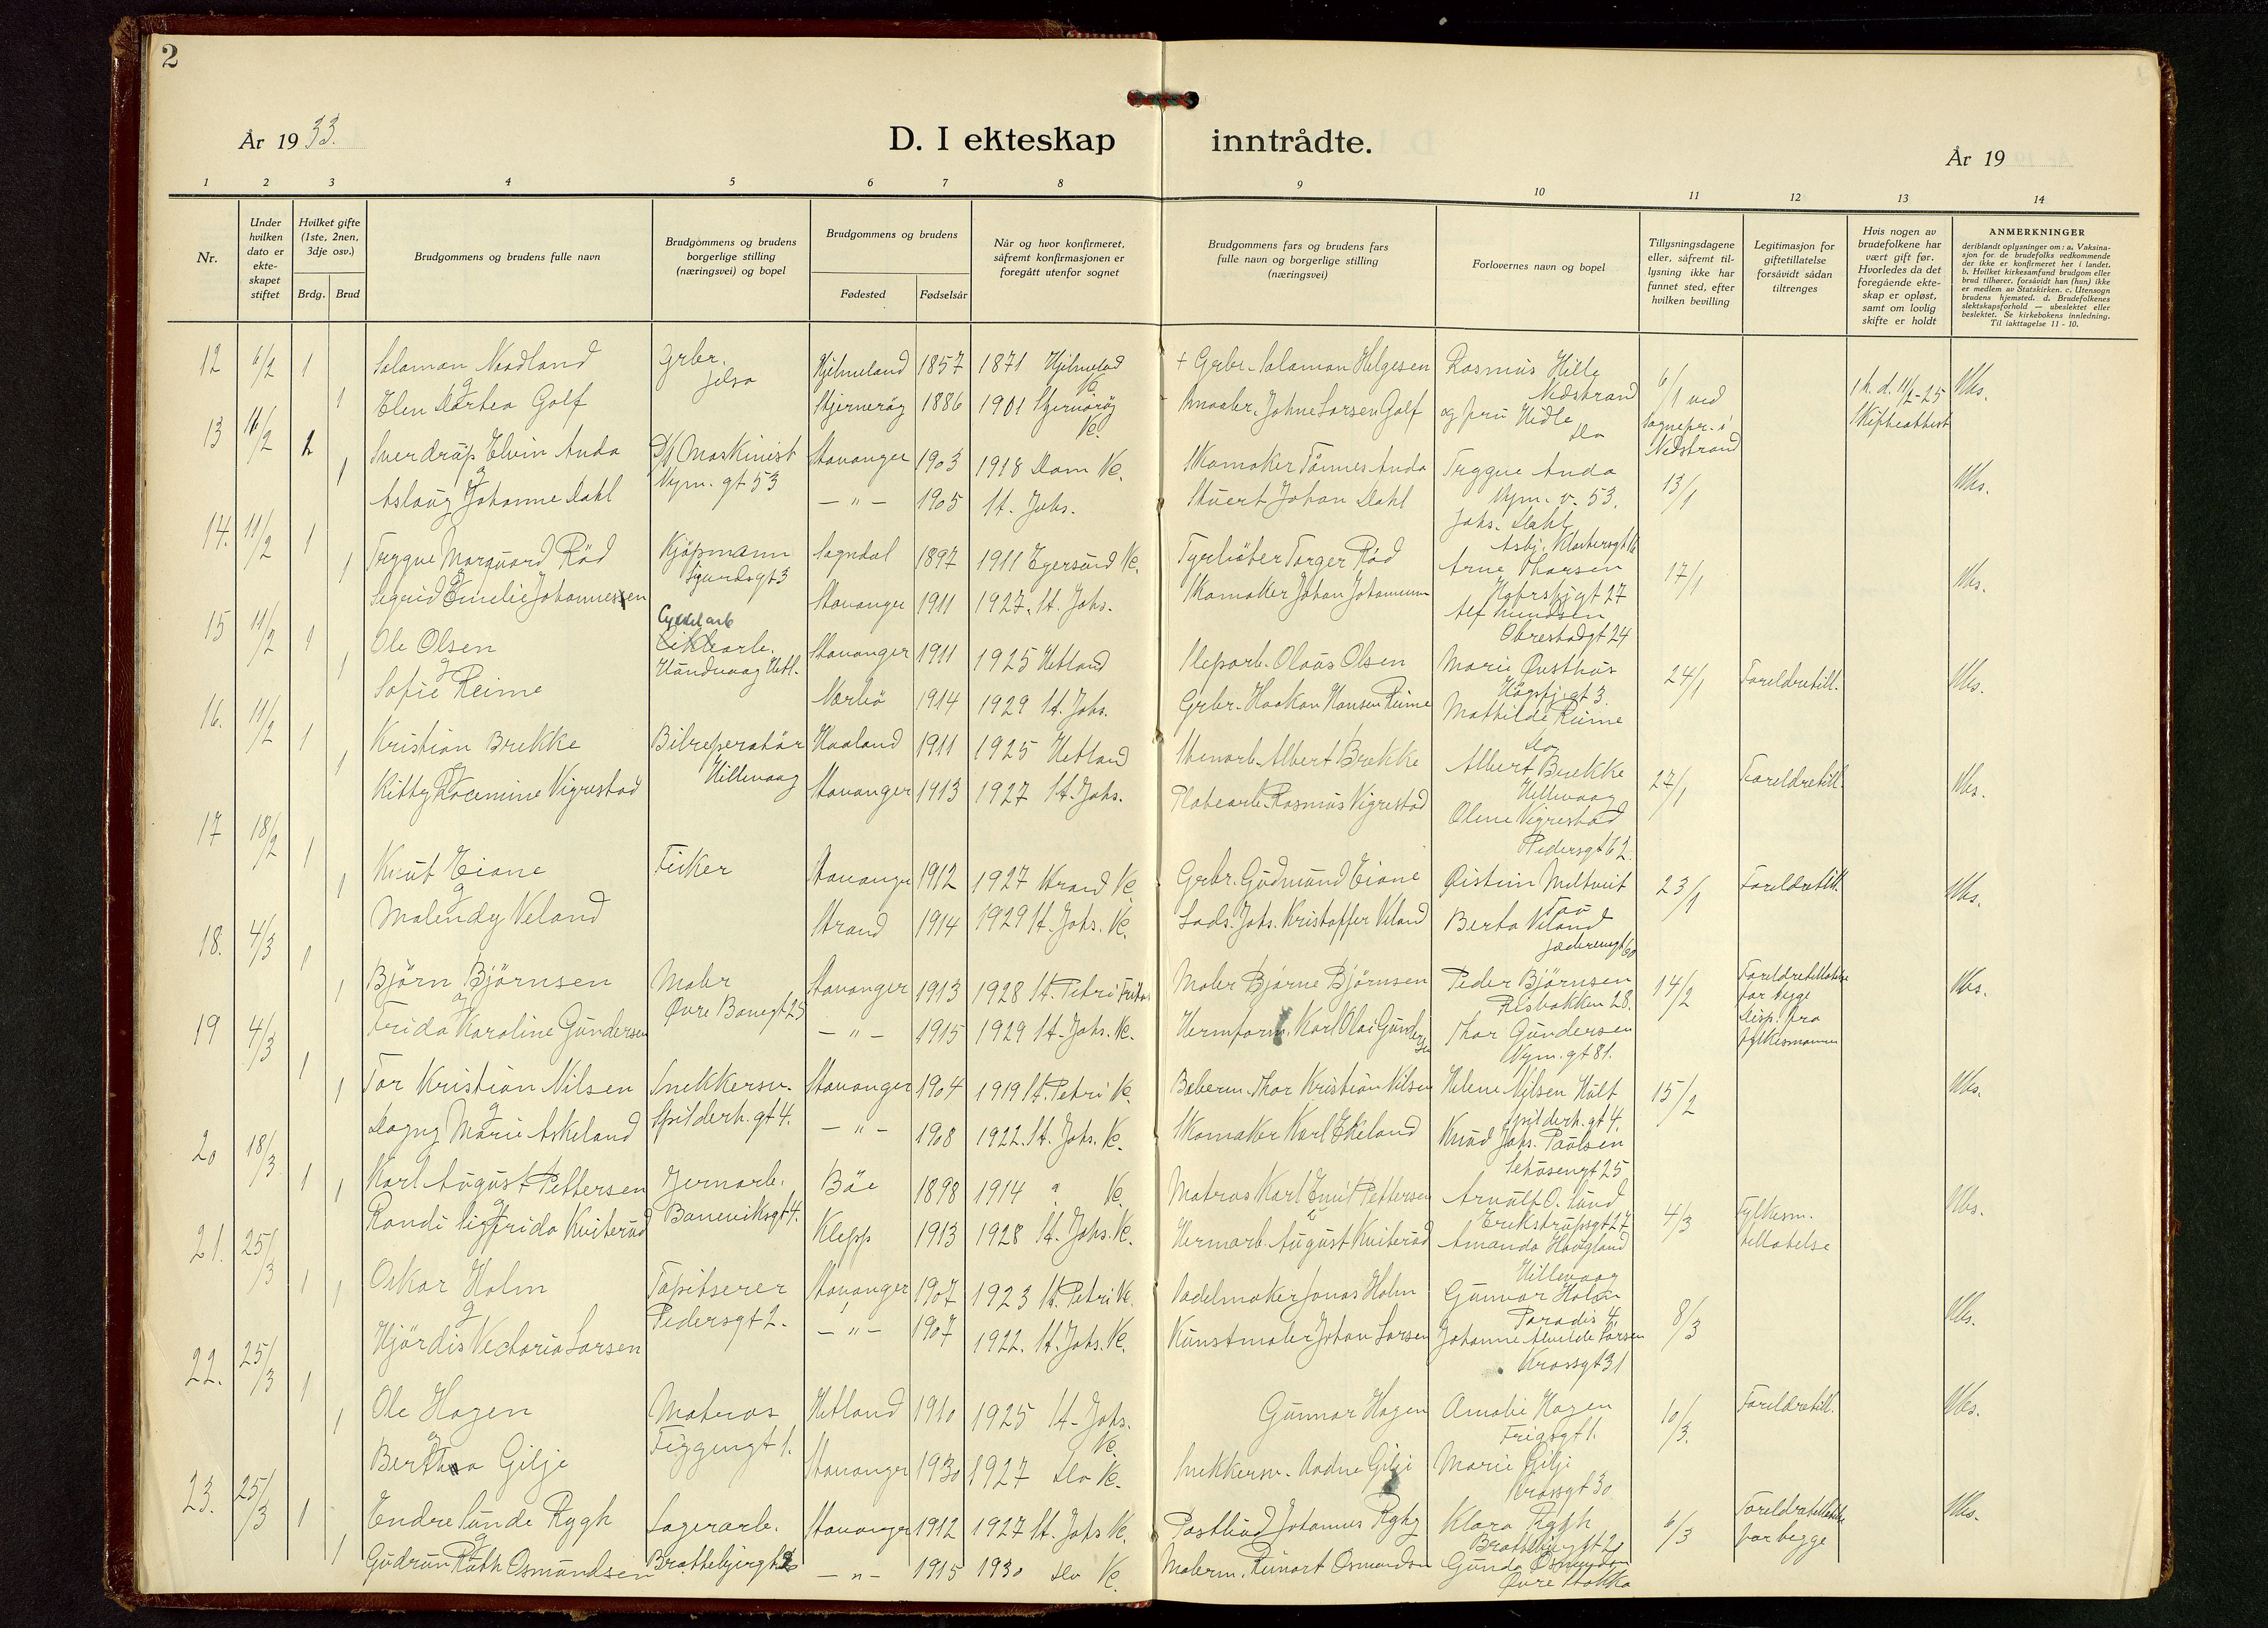 2
År 1933.
D. I ekteskap inntrådte.
År 19
1 2 3 4 5 6 7 8 9 10 11 12 13 14
Nr.
Under hvilken dato er ekte-skapet stiftet
Hvilket gifte (1ste, 2nen, 3dje osv.)
Brdg. Brud
Brudgommens og brudens fulle navn
Brudgommens og brudens borgerlige stilling (næringsvei) og bopel
Brudgommens og brudens
Fødested
Fødselsår
Når og hvor konfirmeret, såfremt konfirmasjonen er foregått utenfor sognet
Brudgommens fars og brudens fars fulle navn og borgerlige stilling (næringsvei)
Forlovernes navn og bopel
Tillysningsdagene eller, såfremt til-lysning ikke har funnet sted, efter hvilken bevilling
Legitimasjon for giftetillatelse forsåvidt sådan tiltrenges
Hvis nogen av brudefolkene har vært gift før. Hvorledes da det foregående ekte-skap er opløst, samt om lovlig skifte er holdt
ANMERKNINGER
deriblandt oplysninger om: a. Vaksina-sjon for de brudefolks vedkommende der ikke er konfirmeret her i landet. b. Hvilket kirkesamfund brudgom eller brud tilhører, forsåvidt han (hun) ikke er medlem av Statskirken. c. Utensogn brudens hjemsted. d. Brudefolkenes slektskapsforhold — ubeslektet eller beslektet. Se kirkebokens innledning. Til iakttagelse 11 - 10.
12 6/2 1 Salamon Nordland Grbr. Jelsa Hjelmeland 1857 1871 Hjelmelad + Grbr. Salamon Helgesen Rasmus Hille Nedstrand 6/1 ved sognepr. i Nedstrand 1 h. d. 11/2-25 Skifteattest Ubs.
g
1 Elen Dortea Golf Sjernerøy 1886 1901 Sjernarøy Ve. Smaabr. Johne Larsen Golf og fru Hidle do
13 11/2 2 Sverdrup Elvin Anda D/S Maskinist Stavanger 1903 1918 Dom Ve. Skomaker Tønnes Anda Trygve Anda Nym. v. 53. 13/1 Ubs.
g Nym. gt 53
1 Aslaug Johanne Dahl - " - 1905 St. Johs. Stuert Johan Dahl Johs. Dahl Asbj. Klostersgt 16
14. 11/2 1 Trygve Marquard Rød Kjøpmann Sogndal 1897 1911 Egersund Ve. Tyrbøter Torger Rød Arne Thorsen 17/1 Ubs.
1 Sigrid Emelie Johannessen Stavanger 1911 1927. St. Johs. Skomaker Johan Johannessen Alf Mundsen Obrestadgt 24
15 11/2 1 Ole Olsen Cykkelarb Hundvaag Hetl. Stavanger 1911 1925 Hetland Sleparb. Olaus Olsen Marie Østhus Høgsfj. gt 3. 24/1 Foreldretill. Ubs.
g
1 Sofie Reime Nærbø 1914 1929 St. Johs. Grbr. Haakon Hansen Reime Mathilde Reime do
16. 11/2 1 Kristian Brekke Bilreperatør Hillevaag Haaland 1911 1925 Hetland Stenarb. Albert Brekke Albert Brekke Hillevaag 27/1 Foreldretill. Ubs.
1 Kitty Vigrestad Stavanger 1913 1927 St. Johs. Platearb. Rasmus Vigrestad Olene Vigrestad Pedersgt 62.
17 18/2 1 Knut Eiane Fisker Stavanger 1912 1927 Strand Ve Grbr. Gudmund Eiane Øistein Meltveit Tau 23/1 Foreldretill. Ubs.
g
1 Malendy Veland Strand 1914 1929 St. Johs. Ve. Lods. Johs. Kristoffer Veland Berta Veland Jæderengt 60
18. 4/3 1 Bjørn Bjørnsen Maler Øvre Banegt 25 Stavanger 1913 1928 St. Petri Maler Bjarne Bjørnsen Peder Bjørnsen Risbakken 28. 14/2 Foreldretillatelse for begge Disp. fra fylkesmannen Ubs.
g
1 Frida Karoline Gundersen - " - 1915 1929 St. Johs. Ve. Hermform. Karl Olai Gundersen Thor Gundersen Nym. gt 81.
19 4/3 1 Tor Kristian Nilsen Snekkersv. Spilderh. gt 4. Stavanger 1904 1919 St. Petri Ve. Thor Kristian Nilsen Helene Nilsen Hult Spilderh. gt 4. 15/2 Ubs.
g
1 Dagny Marie Askeland - " - 1908 1922. St. Johs. Ve. Skomaker Karl Knud Johs. Paulsen
20 18/3 1 1 Karl August Pettersen Jernarb. Baneviksgt 4. Bøe 1898 1914 Ve. Matros Karl Emil Pettersen Arnulf O. Sund Erikstrupsgt 27 4/3 Fylkesm. tillatelse Ubs.
g
Randi Sigfrida Kviterud Klepp 1913 1928 St. Johs. Ve. Hermarb. August Kviterud Amanda Haugland Hillevaag
21. 25/3 1 1 Oskar Holm Tapitserer Pedersgt 2. Stavanger 1907 1923 St. Petri Ve. Sadelmaker Jonas Holm Gunvor Holm Paradis 4. 8/3 Ubs.
g
Hjørdis Vectoria Larsen - " - 1907 1922. St. Johs. Ve. Kunstmaler Johan Larsen Johanne Alvilde Larsen Krossgt 31
22. 25/3 1 Ole Hagen Matros Figgengt 1. Hetland 1910 1925 St. Johs. Ve. Gunnar Hagen Amalie Hagen 10/3. Foreldretill. Ubs.
1 Bertha Gilje Stavanger 1930 1927 do Ve. Snekkersv. Aadne Gilje Marie Gilje Krossgt 30
23. 25/3 1 Endre Sunde Rygh Lagerarb. Stavanger 1912 1927 St. Johs Ve. Postbud Johannes Rygh Klara Rygh 6/3 Foreldretillatelse for begge Ubs.
g
1 Gudrun Ruth Osmundsen - " - 1915 1930 do Ve. Malerm. Reinart Osmundsen Gunda Osmundsen Øvre Stokka